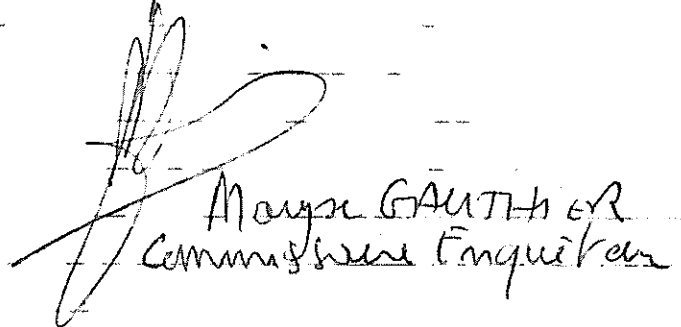 Maryse GAUTHIER
Commissaire Enquêteur